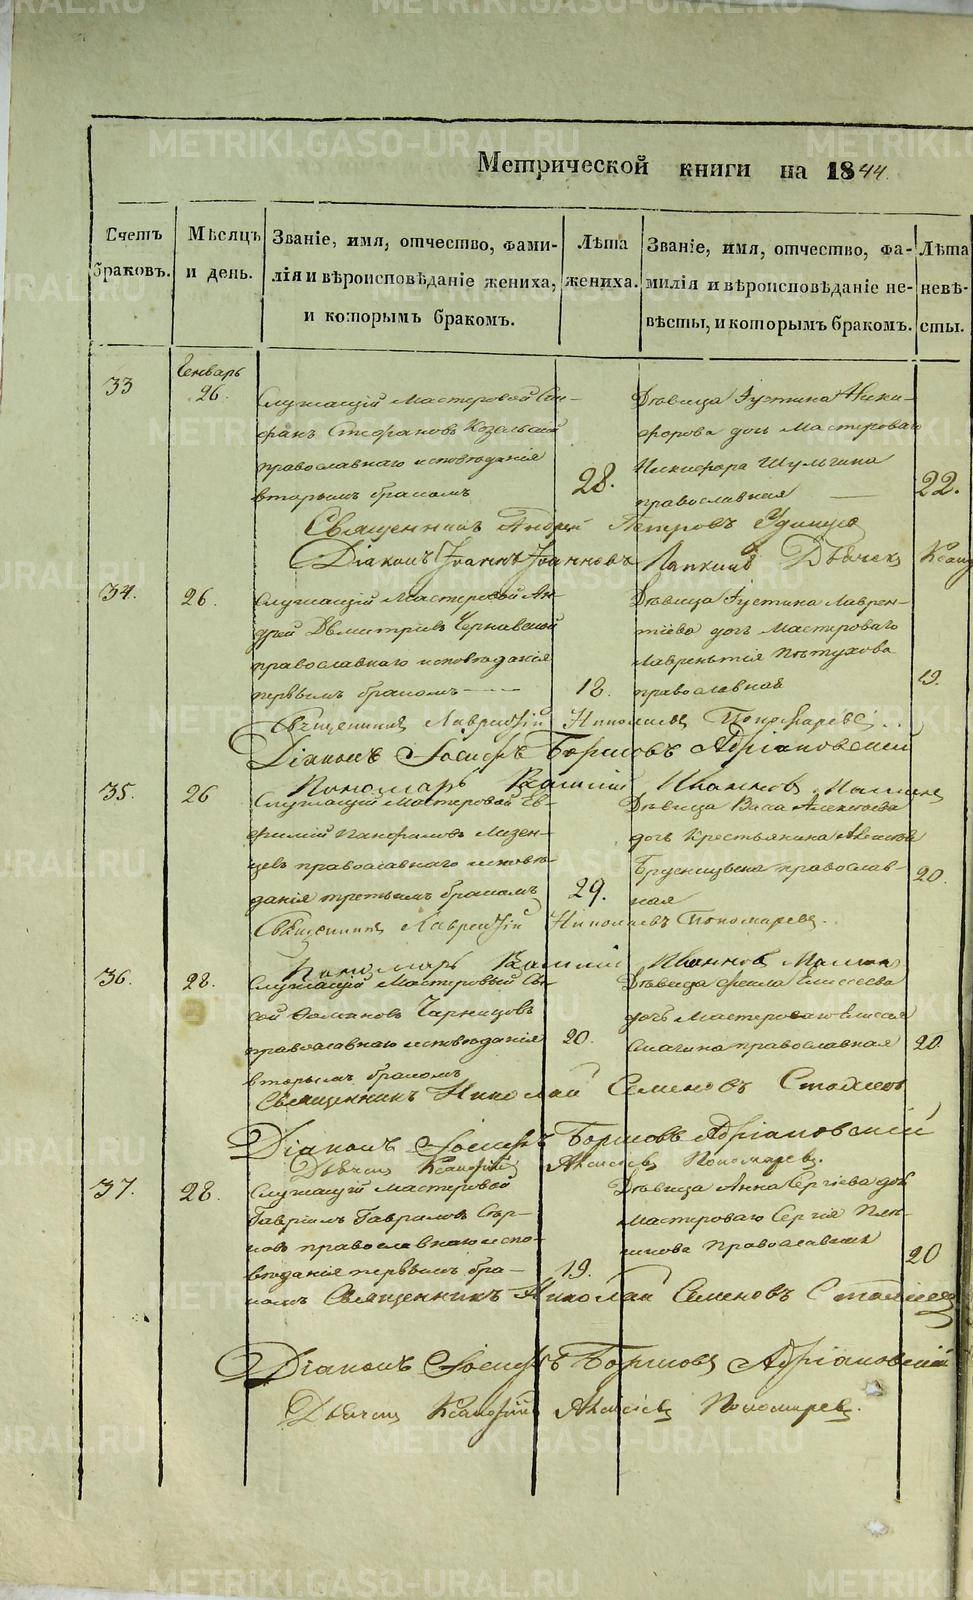 METRIKI.GASO-URAL.RU
Метрической книги на 1844.
Счетъ браковъ.
Мѣсяцъ и день.
Званіе, имя, отчество, фами-
лія и вѣроисповѣданіе жениха,
и которымъ бракомъ.
Лѣта жениха.
Званіе, имя, отчество, фа-
милія и вѣроисповѣданіе не-
вѣсты, и которымъ бракомъ.
Лѣта невѣ-
сты.
33
Генварь
26.
Служащій Мастеровой Сте-
фанъ Стефановъ
православнаго исповѣданія
вторымъ бракомъ
28.
Дѣвица Іустина Ники-
форова дочь Мастероваго
Никифора Шульгина
православная
22.
Священникъ Андрей Петровъ Удинцо
Діаконъ Іоаннъ Іоанновъ Ляпкинъ Дьячекъ
34.
26.
Служащій Мастеровой Ан-
дрей Дмитріевъ Чернавской
православнаго исповѣданія
первымъ бракомъ
18.
Дѣвица Іустина Лаврен-
тіева дочь Мастероваго
Лаврентія Пѣтухова
православная
19.
Священникъ Лаврентій Николаевъ Пономаревъ
Діаконъ Іосифъ Борисовъ Адріановскій
Пономарь Василій Ивановъ
35.
26
Служащій Мастеровой Ев-
фимій Панфиловъ Мезен-
цевъ православнаго исповѣ-
данія третьимъ бракомъ
29.
Дѣвица Васса Алексѣева
дочь Крестьянина Алексѣя
Брусницына православ-
ная
20.
Священникъ Лаврентій Николаевъ Пономаревъ
Пономарь Василій Ивановъ
36.
28.
Служащій Мастеровый Сы-
сой
православнаго исповѣданія
вторымъ бракомъ
20.
Дѣвица Фекла Елисеева
дочь Мастероваго Елисея
православная
20.
Священникъ Николай Семеновъ
Діаконъ Іосифъ Борисовъ Адріановскій
Дьячекъ Ксанфій Алексѣевъ Пономаревъ.
37.
28.
Служащій Мастеровой
Гавріилъ Гавриловъ Сѣр-
ковъ православнаго испо-
вѣданія первымъ бра-
комъ
19.
Дѣвица Анна Сергіева дочь
Мастероваго Сергія
Православная
20
Священникъ Николай Семеновъ
Діаконъ Іосифъ Борисовъ Адріановскій
Дьячекъ Ксанфій Алексѣевъ Пономаревъ.